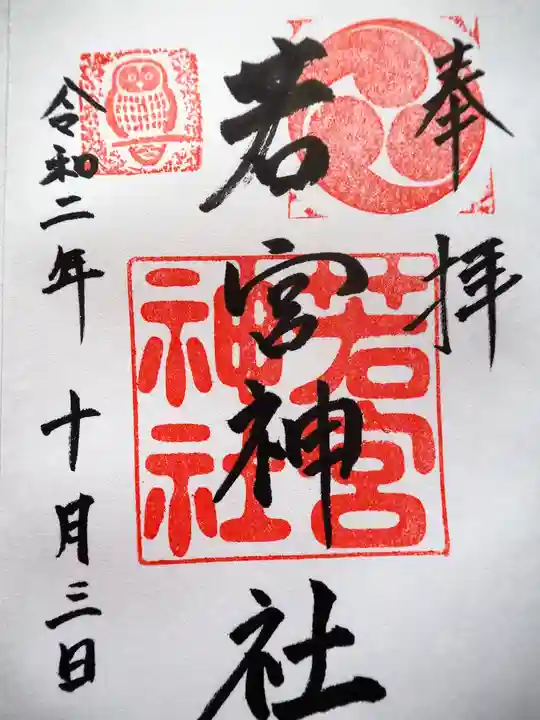 奉拝
若宮神社
若宮
神社
令和二年十月三日